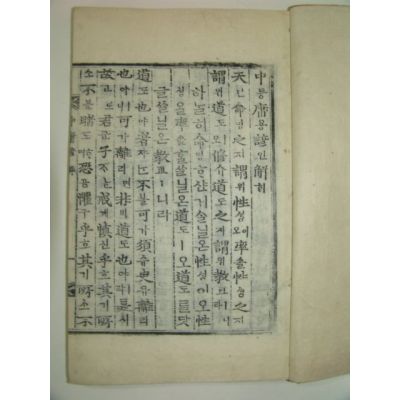 中듕庸용諺언解ᄒᆡ
天텬命명之지謂위性셩이오率솔性셩之지
謂위道도ㅣ오修슈道도之지謂위敎교ㅣ니라
하ᄂᆞᆯ히命명ᄒᆞ샨거슬닐온性셩이오性
셩을率솔ᄒᆞᆯ슬닐온道도ㅣ오道도ᄅᆞᆯ닷
글슬닐온敎교ㅣ니라
道도也야者쟈ᄂᆞᆫ不블可가須슈臾유離리
也야ㅣ니可가離리면非비道도也야ㅣ라是시
故고로君군子ᄌᆞᄂᆞᆫ戒계愼신乎호其기所
소不블睹도ᄒᆞ며恐공懼구乎호其기所소不